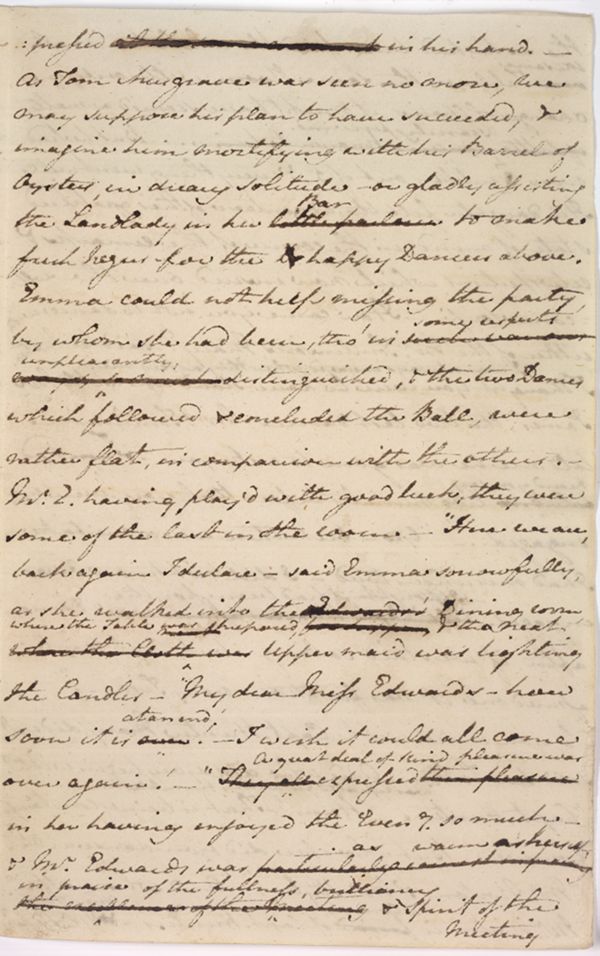 :pressed at the same moment in his hand. —
As Tom Musgrave was seen no more, we
may suppose his plan to have succeeded, &
imagine him mortifying with his Barrel of
Oysters, in dreary solitude — or gladly assisting
Bar
the Landlady in her little parlour to make
fresh Negus for the happy Dancers above.
Emma could not help missing the party,
some respects
by whom she had been, tho' in
unpleasantly,
distinguished, & the two Dances
which followed & concluded the Ball, were
rather flat, in comparison with the others. —
Mr. E. having play'd with good luck, they were
some of the last in the room — "Here we are,
back again I declare — said Emma sorrowfully,
as she walked into the Edwards's Dining room
where the Table was prepared, & the neat
where the Cloth was Upper maid was lighting
the Candles — "My dear Miss Edwards — how
at an end!
soon it is over! — I wish it could all come
A great deal of kind pleasure was
over again! —" They all expressed their pleasure
in her having enjoyed the Eveng. so much —
as warm as herself,
& Mr. Edwards was
in praise of the fullness, brilliancy
the excellence of the meeting & Spirit of the
Meeting